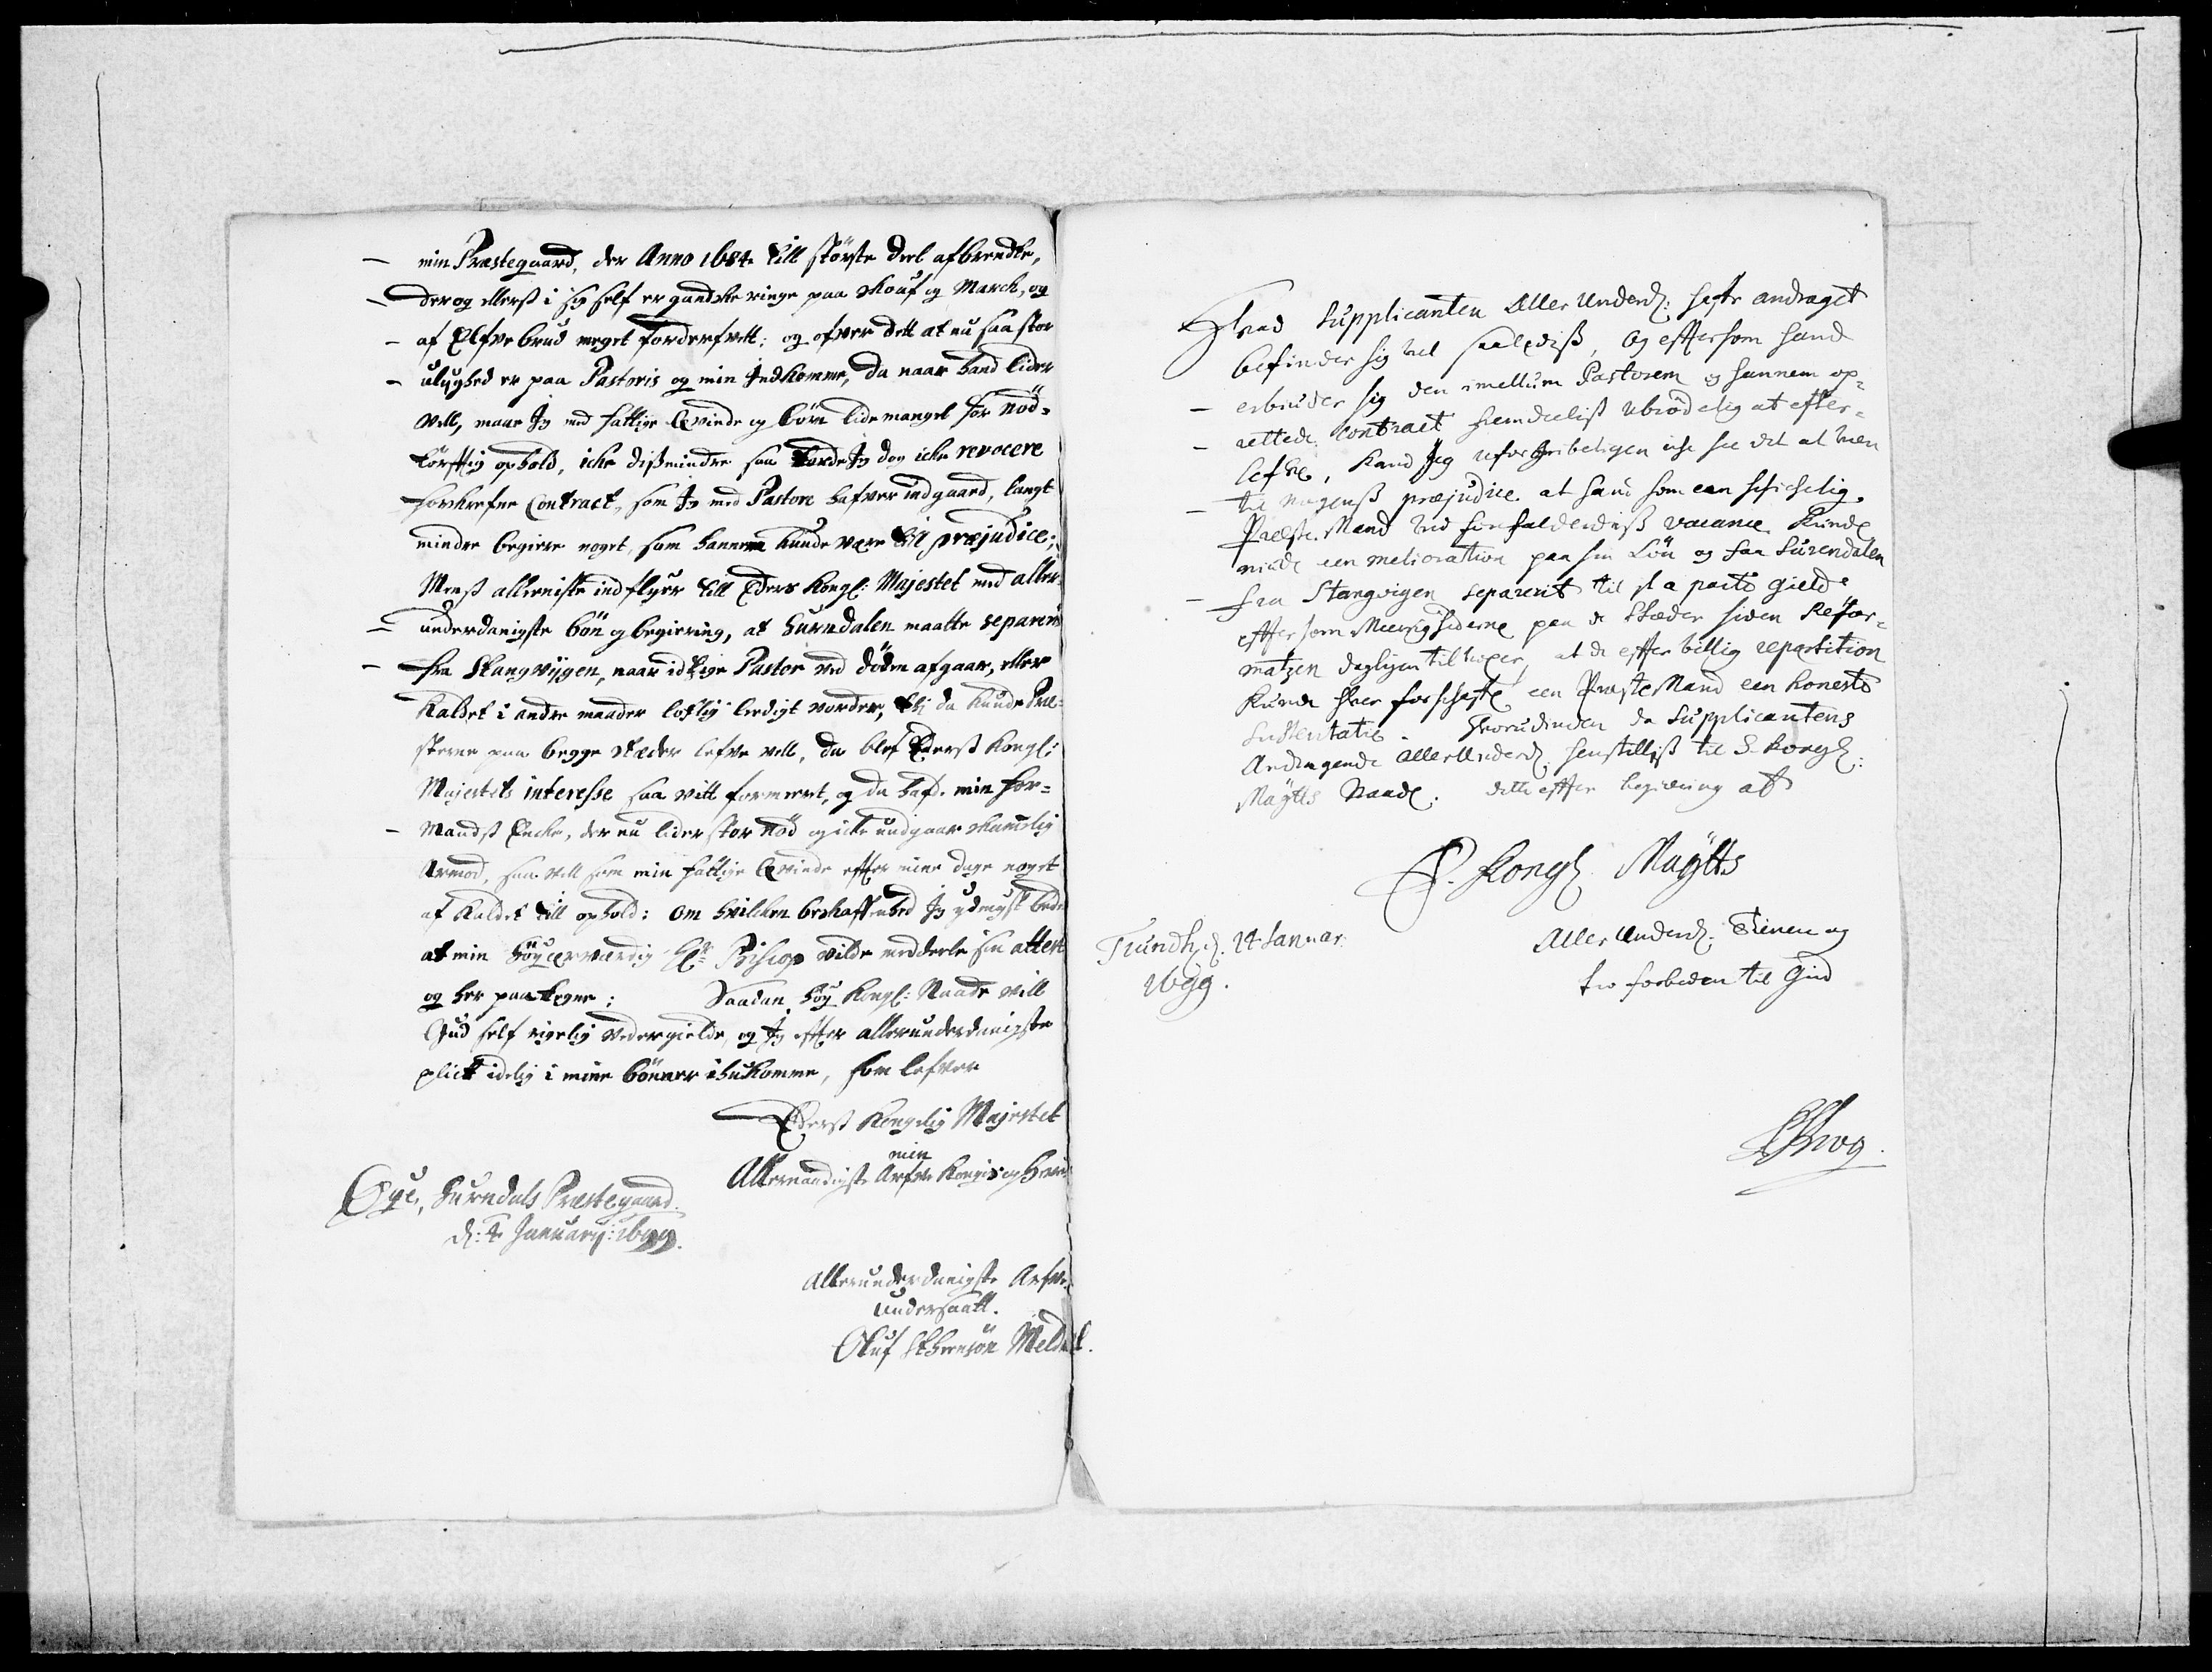 min Præstegaard, der Anno 1684 till störste deel afbrendte,
der og ellerst i sig self er gandske ringe paa skouf og March, og
af Elfvebrud meget forderfvett; og ofver dett at nu saa stor
ulyghed er paa Pastoris og min Indkomme, da naar hand lider
vell, maar Jeg med fattige Qvinde og börn lide mangel for nöd=
törfftig ophold, icke dissmindre saa torde Jeg dog icke revocere
forskrefne Contract, som Jeg med Pastore hafver indgaard, langt
mindre begiere noget, som hannem kunde være till præjudice;
Menst alleeniste indflyer till Eders Kongl: Majestet med aller=
underdanigste bön og begiering, at Surndalen maatte separeris
fra Stangvijgen, naar idtzige Pastor ved döden afgaar, eller
Kaldet i andre maader loflig leedigt vorder, thj da kunde Præ=
sterne paa begge stæder lefve vell, da blef Ederst Kongl:
Majestets interesse saa vitt formeert, og da hafde min for=
Mandst Encke, der nu lider stor nöd og icke undgaar skammelig
Armod, saa vell som min fattige Qvinde effter mine dage noget
af Kaldet till ophold: om hvilcken beskaffenhed Jeg ydmygst beder
at min höyærværdig Hr Biskop vilde meddeele sin attest
og her paa tegne: Saadan höy Kongl: Naade vill
Gud self rigelig vedergielde, og Jeg effter allerunderdanigste
plict idelig i mine bönner ihukomme, som lefver
Ederst Kongelig Majestet
min
Allernaadigste Arfve Kongis og Herris
Öye, Surndals Præstegaard.
d: 4 January: 1699.
Allerunderdanigste Arfve
undersaatt.
Oluf Meldal.
Hvad Supplicanten Aller Underd: hafr andraget
befinder sig vel saalediss, og eftersom hand
erbiuder sig den imellum Pastorem og hannem op=
rettede contract fremdeeliss ubrödelig at efter=
lefve, kand Jeg uforgribeligen icke see det at være
til nogenss præjudice at hand som een schichelig
Præste Mand ved forefaldendiss vacance kunde
niude een melioration paa sin Lön og faa Surendalen
fra Stangvigen separerit til et a parte gield
eftersom paa de Stæder siden Refor=
matzen dagligen tilvoxer, at de effter billig repartition
kunde hver forschaffe een Præste Mand een honeste
Sustentatie. Hvorudinden da Supplicantens
Andragende AllerUnderd. henstilliss til E. Kongl:
Maytts Naade. dette efter begiering af
E. Kongl Maytts
Trundh: d. 14 Januar:
1699.
Aller Underd: Tienere og
tro forbeder til Gud